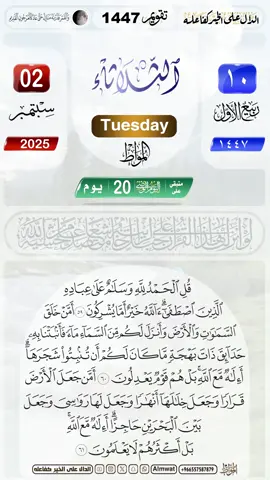 الدال على الخير كفاعله
تقويم 1447
02
سبتمبر
2025
الثلاثاء
Tuesday
١٠
ربيع الأول
١٤٤٧
متبقي على
20 يوم
قُلِ ٱلۡحَمۡدُ لِلَّهِ وَسَلَٰمٌ عَلَىٰ عِبَادِهِ
ٱلَّذِينَ ٱصۡطَفَىٰٓۗ ءَآللَّهُ خَيۡرٌ أَمَّا يُشۡرِكُونَ ٥٩ أَمَّنۡ خَلَقَ
ٱلسَّمَٰوَٰتِ وَٱلۡأَرۡضَ وَأَنزَلَ لَكُم مِّنَ ٱلسَّمَآءِ مَآءٗ فَأَنۢبَتۡنَا بِهِۦ
حَدَآئِقَ ذَاتَ بَهۡجَةٖ مَّا كَانَ لَكُمۡ أَن تُنۢبِتُواْ شَجَرَهَآۗ
أَءِلَٰهٞ مَّعَ ٱللَّهِۚ بَلۡ هُمۡ قَوۡمٞ يَعۡدِلُونَ ٦٠ أَمَّن جَعَلَ ٱلۡأَرۡضَ
قَرَارٗا وَجَعَلَ خِلَٰلَهَآ أَنۡهَٰرٗا وَجَعَلَ لَهَا رَوَٰسِيَ وَجَعَلَ
بَيۡنَ ٱلۡبَحۡرَيۡنِ حَاجِزًاۗ أَءِلَٰهٞ مَّعَ ٱللَّهِۚ
بَلۡ أَكۡثَرُهُمۡ لَا يَعۡلَمُونَ ٦١
+966557587879 Almwat الدال على الخير كفاعله